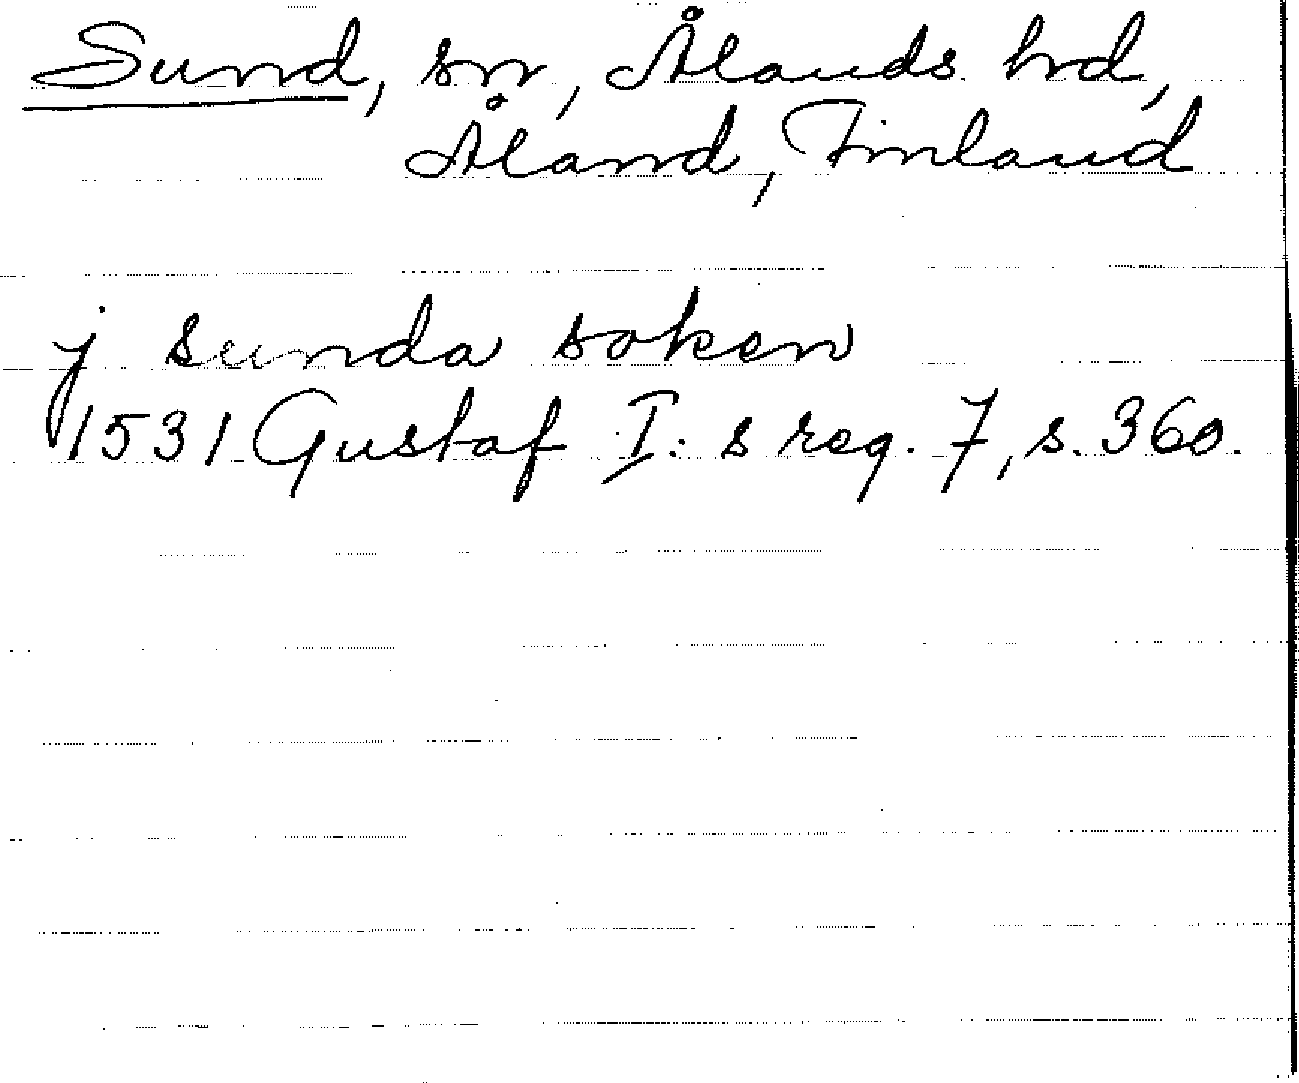 Sund, sn, Ålands hd,
Åland, Finland
j sunda soken
1531 Gustaf I:s reg. 7, s. 360.